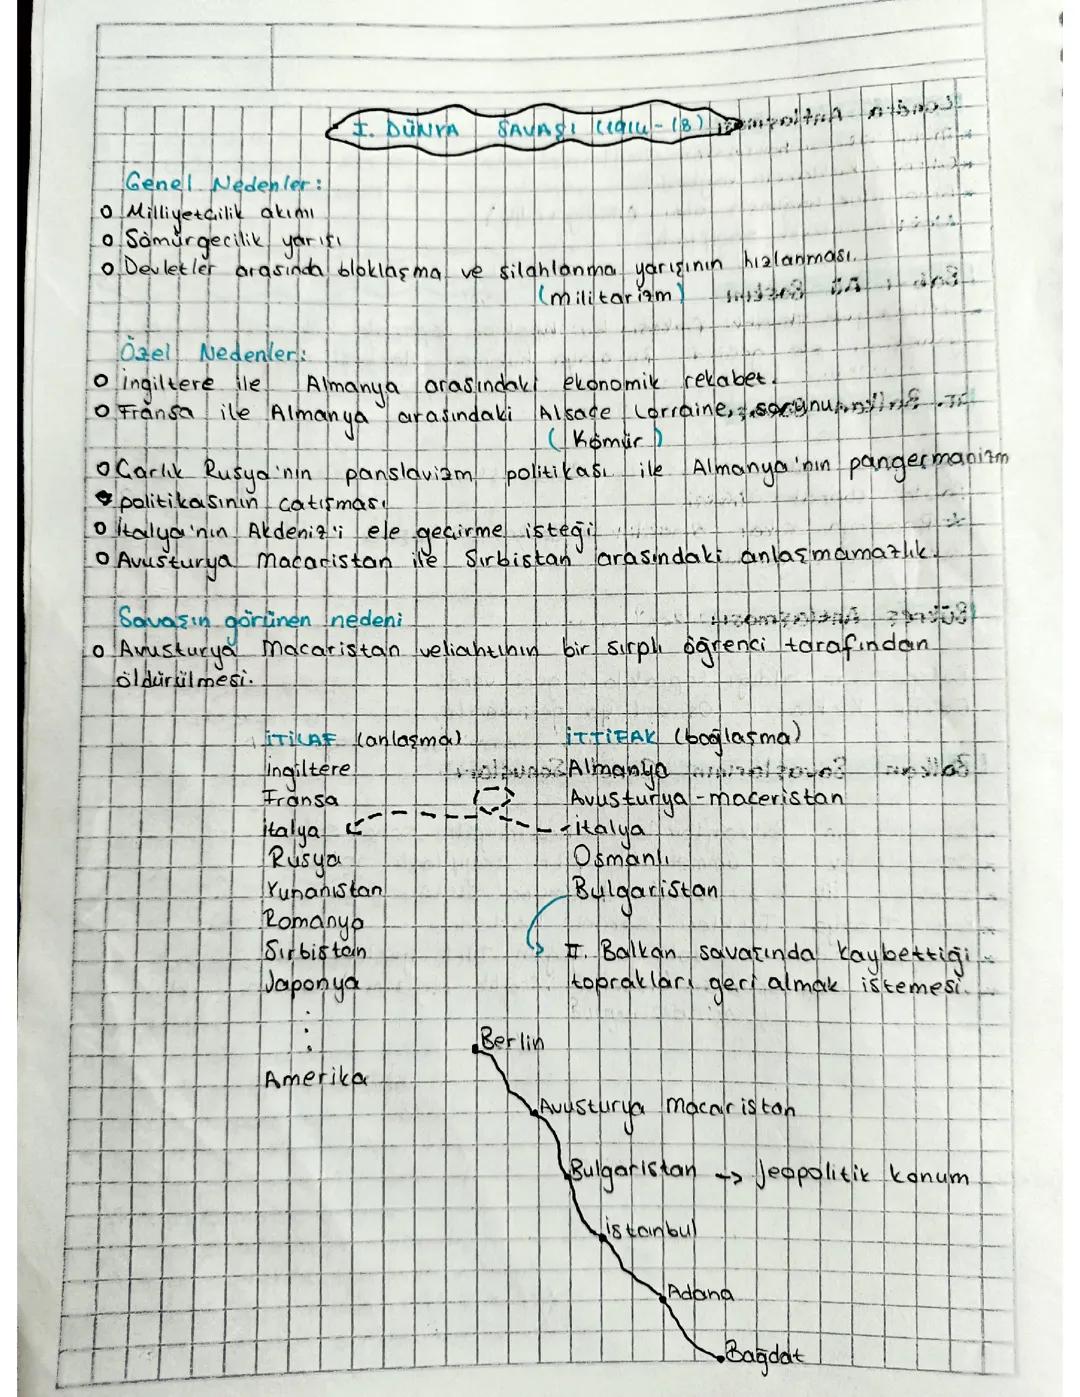 I. DÜNYA SAVAŞI (1914-18)
Genel Nedenler:
o Milliyetçilik akımı
o Sömürgecilik yarışı
o Devletler arasında bloklaşma ve silahlanma yarışının hızlanması.
(militarizm)
Özel Nedenler:
o İngiltere ile Almanya arasındaki ekonomik rekabet.
o Fransa ile Almanya arasındaki Alsace Lorraine, sorunu
(Kömür)
o Çarlık Rusya'nın panslavizm politikası ile Almanya'nın pangermanizm
politikasının çatışması
o İtalya'nın Akdeniz'i ele geçirme isteği
o Avusturya Macaristan ile Sırbistan arasındaki anlaşmamazlık.
Savaşın görünen nedeni
o Avusturya Macaristan veliahtının bir sırplı öğrenci tarafından
öldürülmesi.
İTİLAF (anlaşma) İTTİFAK (bağlaşma)
İngiltere Almanya
Fransa Avusturya-maceristan
İtalya italya
Rusya Osmanlı
Yunanistan Bulgaristan
Romanya
Sırbistan II. Balkan savaşında kaybettiği
Japonya toprakları geri almak istemesi.
Berlin
Amerika
Avusturya Macaristan
Bulgaristan -> Jeopolitik konum
istanbul
Adana
Bağdat